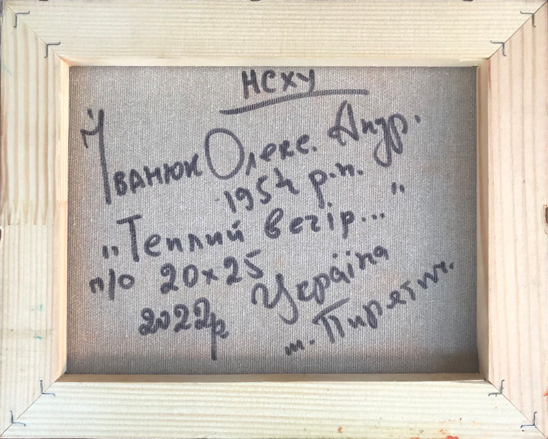 НСХУ
Іванюк Олекс. Андр.
1954 р.н.
„Теплий вечір..."
п/о 20x25
2022р Україна
м. Пирятин.